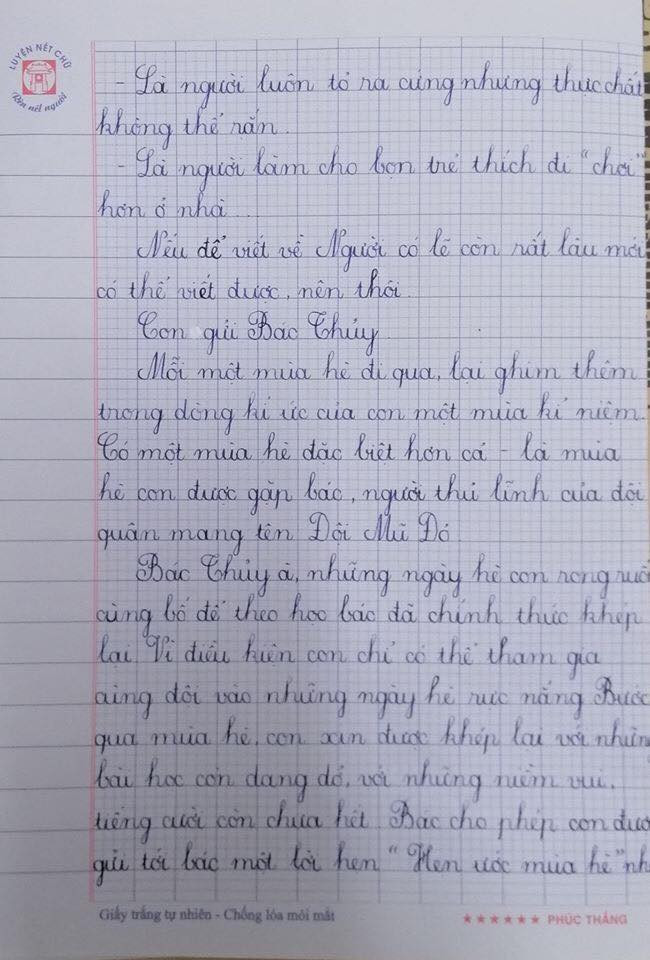 LUYỆN NÉT CHỮ
Rèn nết người
- Là người luôn tỏ ra cứng nhưng thực chất
không thể rắn.
- Là người làm cho bọn trẻ thích đi "chơi"
hơn ở nhà.
Nếu để viết về Người có lẽ còn rất lâu mới
có thể viết được, nên thôi.
Con gửi Bác Thủy
Mỗi một mùa hè đi qua, lại ghim thêm
trong dòng kí ức của con một mùa kỉ niệm.
Có một mùa hè đặc biệt hơn cả - là mùa
hè con được gặp bác, người thủ lĩnh của đội
quân mang tên Đội Mũ Đỏ
Bác Thủy à, những ngày hè con rong ruổi
cùng bố để theo học bác đã chính thức khép
lại Vì điều kiện con chỉ có thể tham gia
cùng đội vào những ngày hè rực nắng Bước
qua mùa hè, con xin được khép lại với những
bài học còn dang dở, với những niềm vui,
tiếng cười còn chưa hết. Bác cho phép con đượ
gửi tới bác một lời hẹn "Hẹn ước mùa hè" nh
Giấy trắng tự nhiên - Chống lóa mỏi mắt
★★★★★★ PHÚC THẮNG